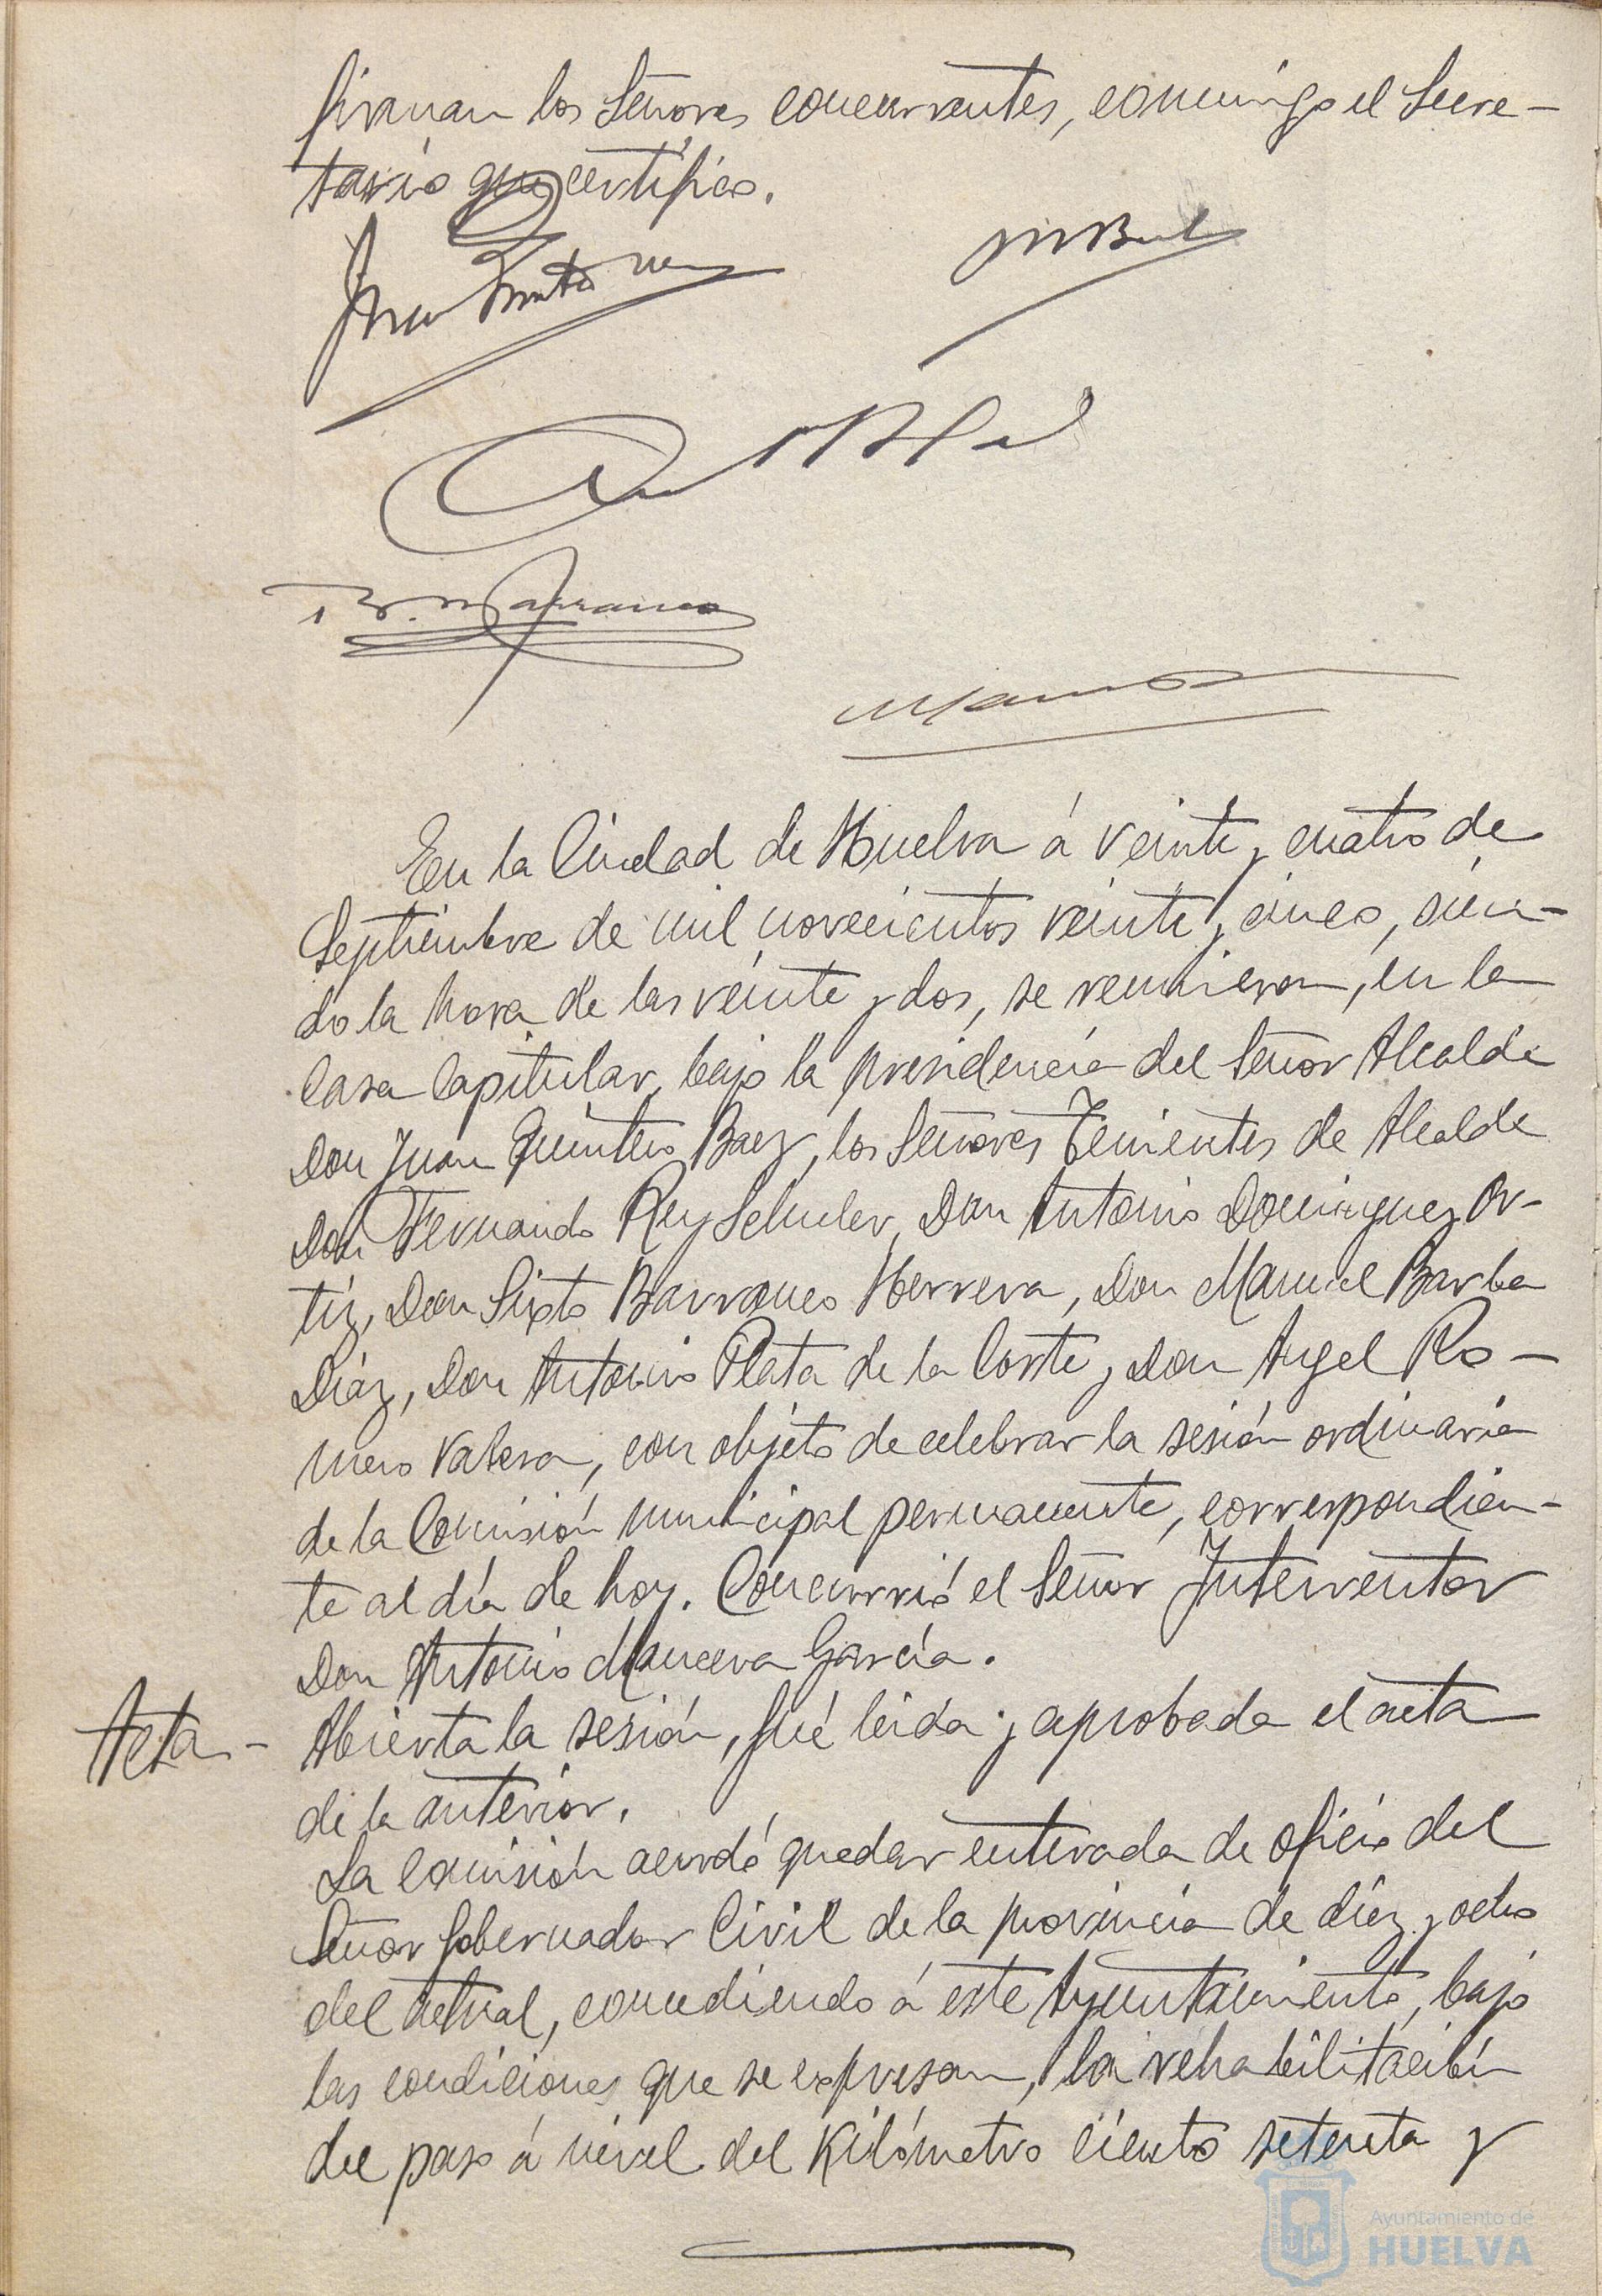 firman los Señores concurrentes, conmigo el Secre-
tario que certifico.
En la Ciudad de Huelva á veinte y cuatro de
Septiembre de mil novecientos veinte y cinco, sien-
do la hora de las veinte y dos, se reunieron, en la
Casa Capitular, bajo la presidencia del Señor Alcalde
Don Juan Quintero Baez, los Señores Tenientes de Alcalde
Don Fernando Rey Schuler, Don Antonio Dominguez Or-
tiz, Don Sixto Barranco Herrera, Don Manuel Barba
Díaz, Don Antonio Plata de la Corte y Don Angel Ro-
mero Valera, con objeto de celebrar la sesión ordinaria
de la Comisión municipal permanente, correspondien-
te al día de hoy. Concurrió el Señor Interventor
Don Antonio Mancera García.
Acta - Abierta la sesión, fué leida y aprobada el acta
de la anterior.
La Comisión acordó quedar enterada de oficio del
Señor Gobernador Civil de la provincia de diez y ocho
del actual, concediendo á este Ayuntamiento, bajo
las condiciones que se expresan, la rehabilitación
del paso á nivel del Kilómetro ciento setenta y
Ayuntamiento de
HUELVA